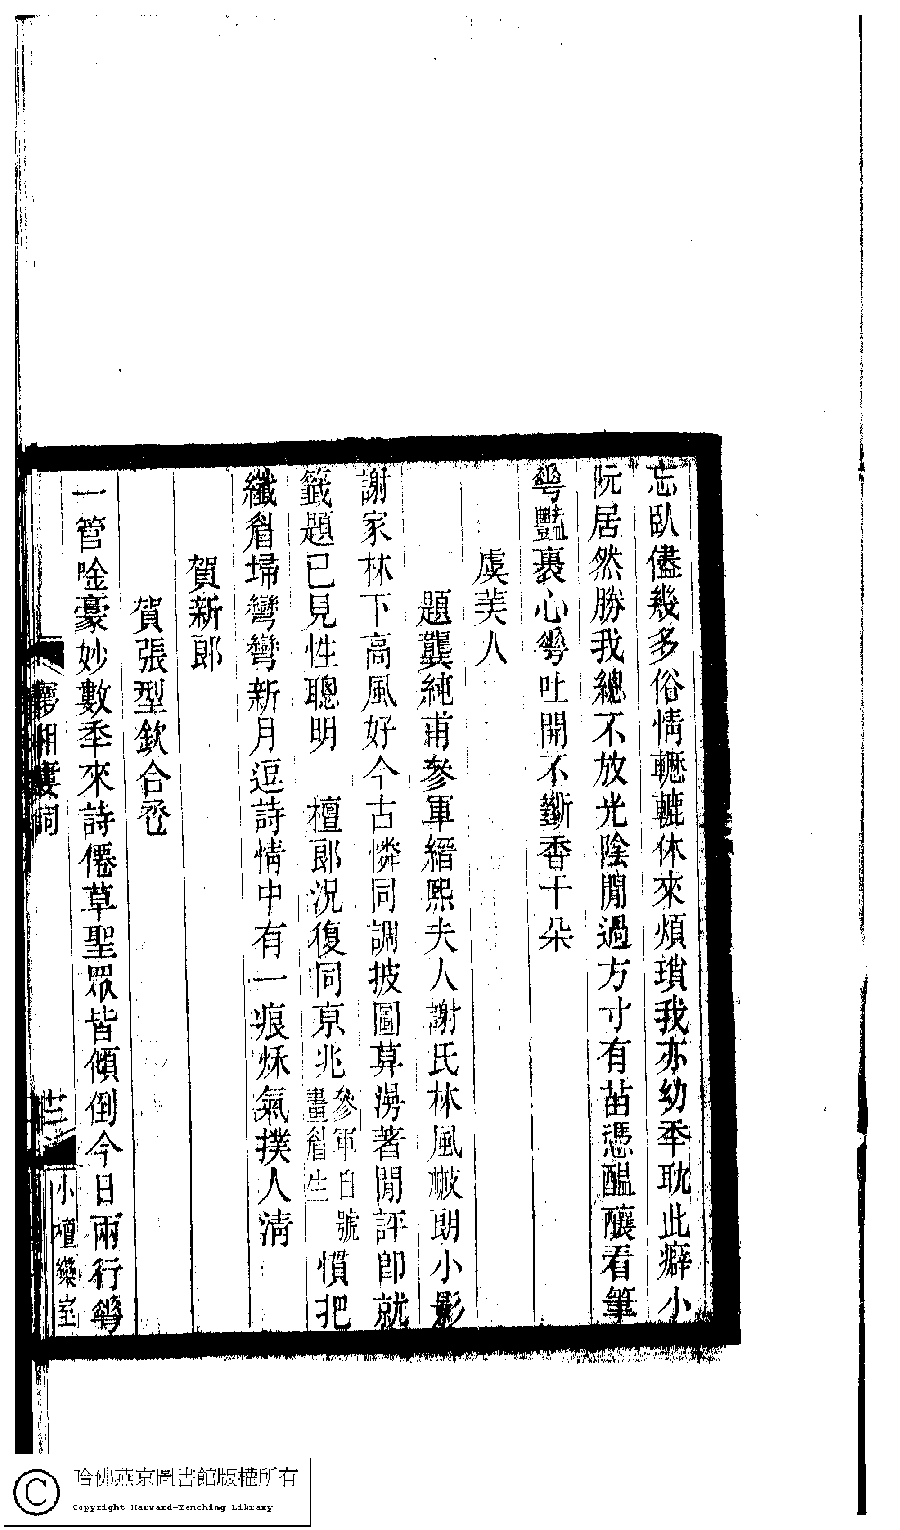 忘臥儘幾多俗情轣轆休來煩瑣我亦幼秊耽此癖小
阮居然勝我總不放光陰閒過方寸有苗憑醞釀看筆
琌豔裹心琌吐開不斷香千朵
虞美人
題龔純甫參軍縉熙夫人謝氏林風檆朗小影
謝家林下高風好今古憐同調披圖算澷著閒評卽就
籤題已見性聰明 檀郎況復同京兆參軍自號畫眉生慣把
纖眉埽彎彎新月逗詩情中有一痕秌氣撲人淸
賀新郎
賀張型欽合巹
一管唫豪妙數秊來詩僊草聖眾皆傾倒今日兩行琌
夢湘廔詞
廿三
小檀欒室
哈佛燕京圖書館版權所有
Copyright Harvard-Yenching Library